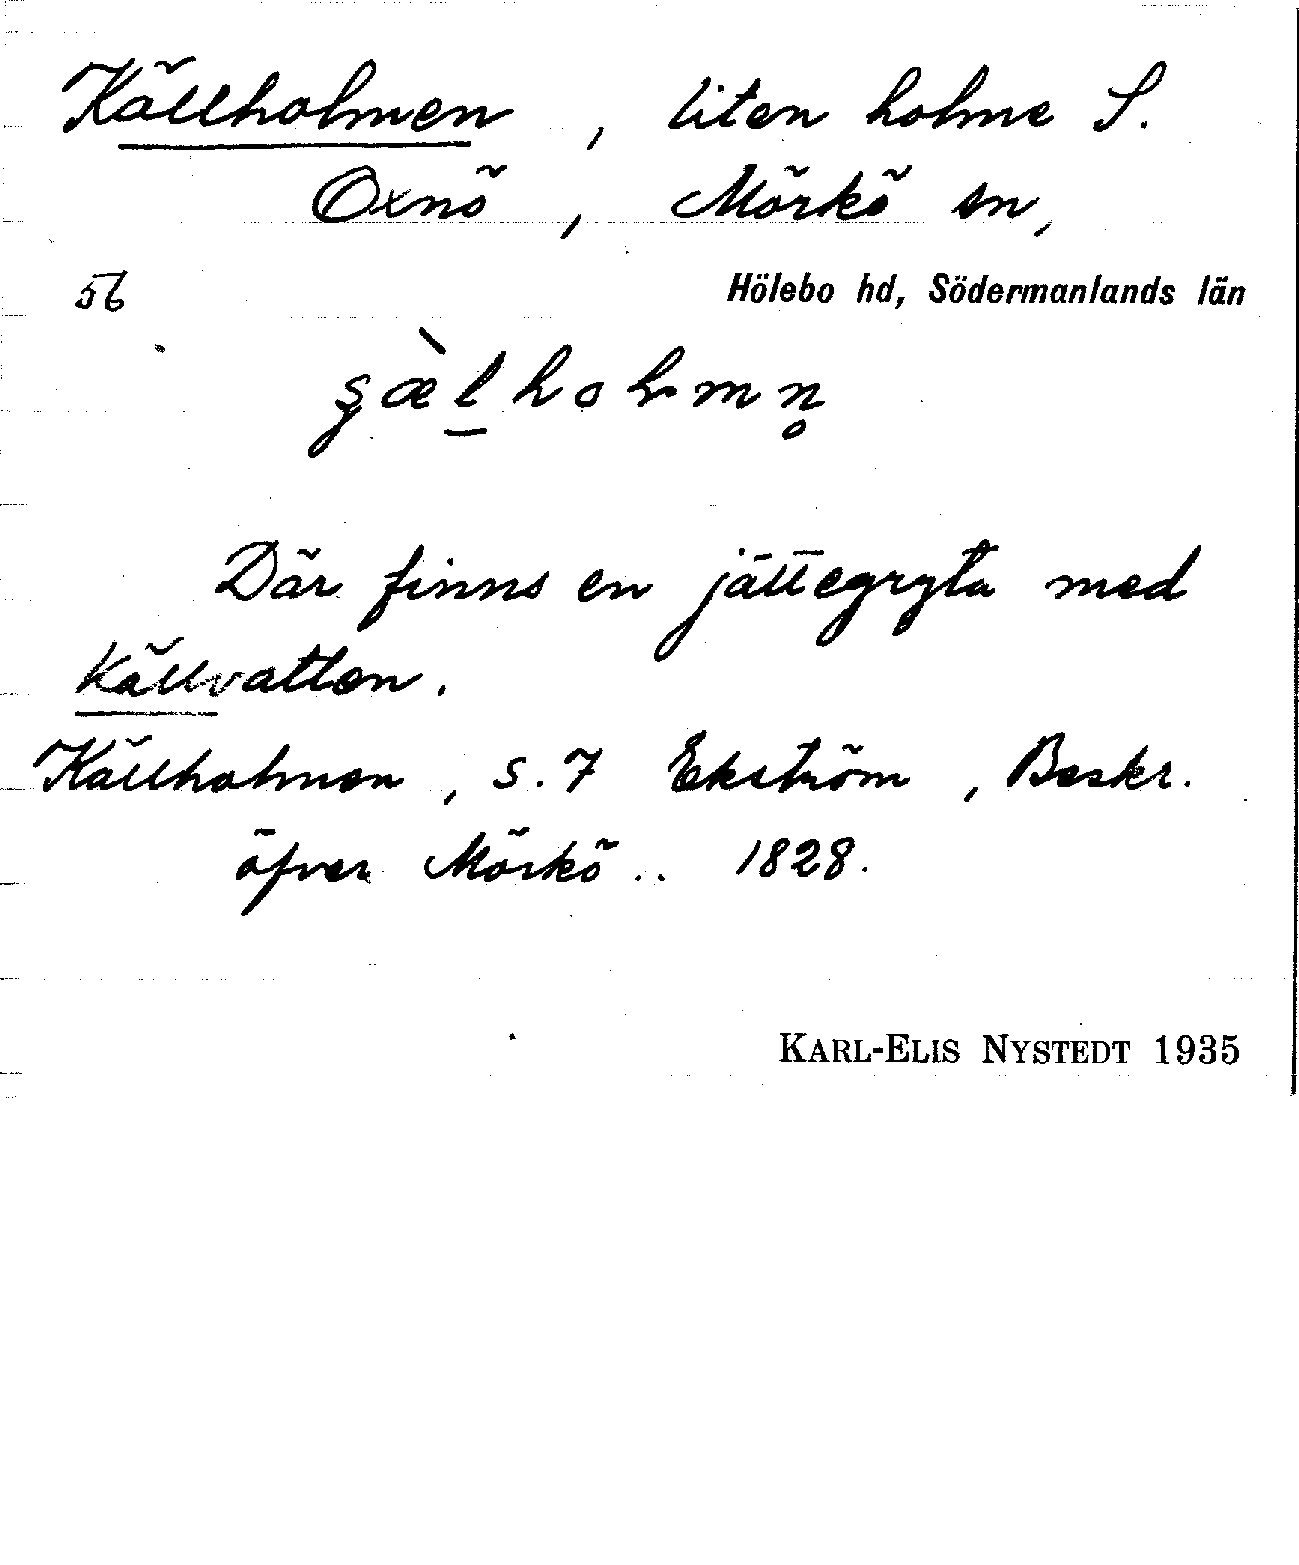 Källholmen, liten holme S.
Oxnö, Mörkö sn,
56 Hölebo hd, Södermanlands län
Där finns en jättegryta med
källvatten.
Källholmen, s. 7 Ekström, Beskr.
öfver Mörkö .. 1828.
KARL-ELIS NYSTEDT 1935